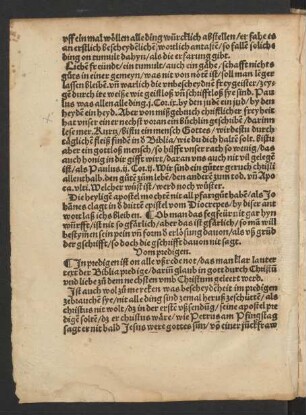 vff ein mal wöllen alle ding würcklich abstellen/ er fahe es
an erstlich bescheydēliche/ wortlich antastē/ so fallē solichs
ding on tumult dahyn/ als die erfarung gibt.
Liebē freünde/ ein tumult/ auch ein gähe/ schafft nichts
gůts in einer gemeyn/ was nit von nötē ist/ soll man leger
lassen bleibē. ir warlich die vnbescheydnē freygeister/ seyt
ge durch ire weiße wie geistloß vñ schrifftloß sye sind. Pau
lus was allen alle ding. j. Cor. ix. bey den judē ein jud/ by den
heydē ein heyd. Aber von mißgebruch christlicher freyheit
hat vnser einer nechst voran ein büchlin geschribē/ darim̄
lese mer. Kurtz/ bistu ein mensch Gottes/ wirdestu durch
täglichē fleiß findē in 8 Biblia/ wie du dich haltē solt. Bistu
aber ein gottloß mensch/ so hilfft vnser rath so wenig/ das
auch honig in dir gifft wirt/ daran vns auch nit vil geleggē
ist/ als Paulus. ij. Cor. ij. Wir sind ein gůter geruch christi
allenthalb. den gůtē zům lebē/ den anderē zum tod. vñ Apo
ca. vlti. Welcher wüst ist/ werd noch wüster.
Die heylige apostel mochtē nit all pfargüst habē/ als Jo
hānes clagt in 8 drittē epistel vom Diotrepes/ by diser ant
wort laß ichs bleiben. ¶ Ob man das fegfeüer nit gar hyn
würfft/ ist nit so gfärlich/ aber das ist gfärlich/ so mā will
bestymen sein pein vñ form/ ꝫ erlösung dauon/ als vß grün
der gschifft/ so doch die gschifft dauon nit sagt.
Vom predigen.
¶ In predigen ist on alle vßrede not/ das man klar lauter
text der Biblia predige/ darin glaub in gott durch Christū
vnd liebe zů dem nechsten vmb Christum geleert werd.
Ist auch wol zů mercken was bescheydēheit im predigen
zebrauchē sye/ nit alle ding sind zemal heruß zeschüttē/ als
christus nit wolt/ dz in der erstē vßsendūg/ seine apostel pre
digē soltē/ dz er christus wäre/ wie Petrus am Pfingstag
sagt er nit bald Jesus were gottes sun/ vō einer jückfraw